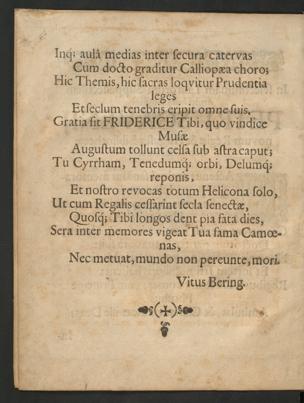 Inq; aulâ medias inter secura catervas
Cum docto graditur Calliopæa choro;
Hic Themis, hic sacras loqvitur Prudentia
leges
Et seclum tenebris eripit omne suis.
Gratia sit FRIDERICE Tibi, quo vindice
Musæ
Augustum tollunt celsa sub astra caput;
Tu Cyrrham, Tenedumq; orbi, Delumq;
reponis,
Et nostro revocas totum Helicona solo,
Ut cum Regalis cessarint secla senectæ,
Quosq; Tibi longos dent pia fata dies,
Sera inter memores vigeat Tua fama Camœ-
nas,
Nec metuat, mundo non pereunte, mori.
Vitus Bering.